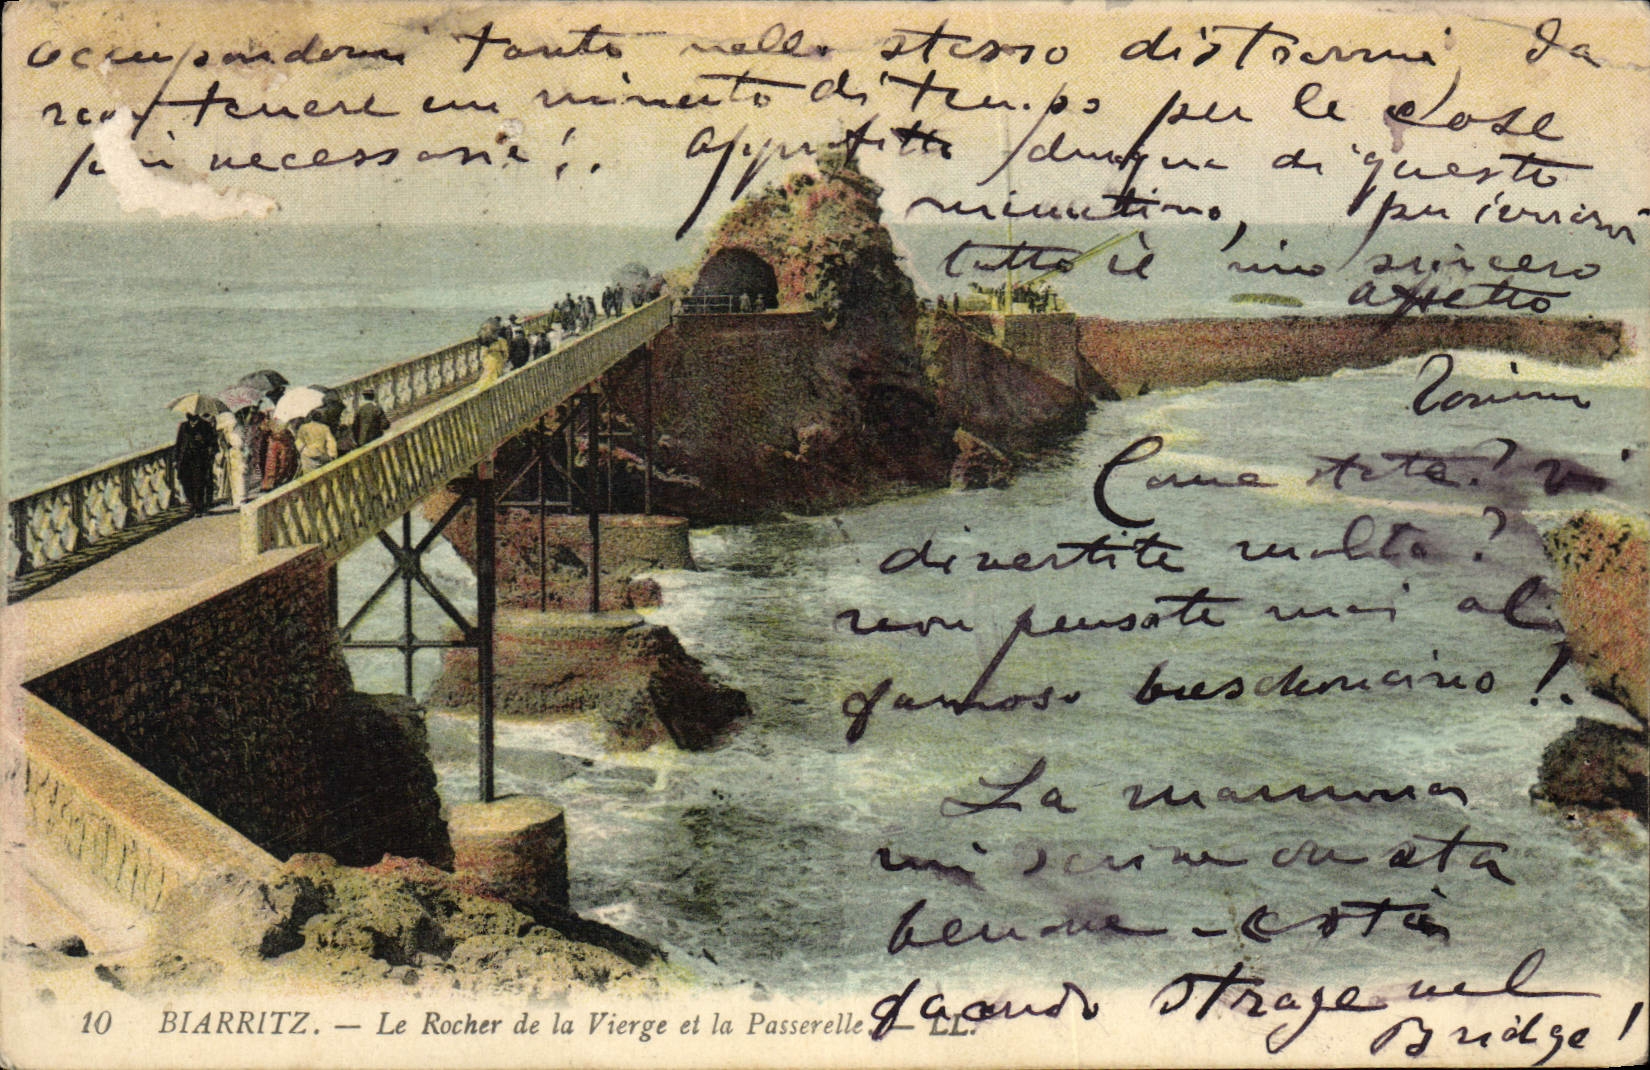 occupandomi tanto nello stesso distrarmi, da
non tenere un minuto di tempo per le cose
più necessarie!.. approfitto dunque di questo
minutino, per inviarvi
tutto il mio sincero
affetto
Come state? vi
divertite molto?
non pensate mai al
famoso
La mamma
mi scrive che sta
benone - e sta
facendo strage nel
Bridge!
10 BIARRITZ. — Le Rocher de la Vierge et la Passerelle. — LL.